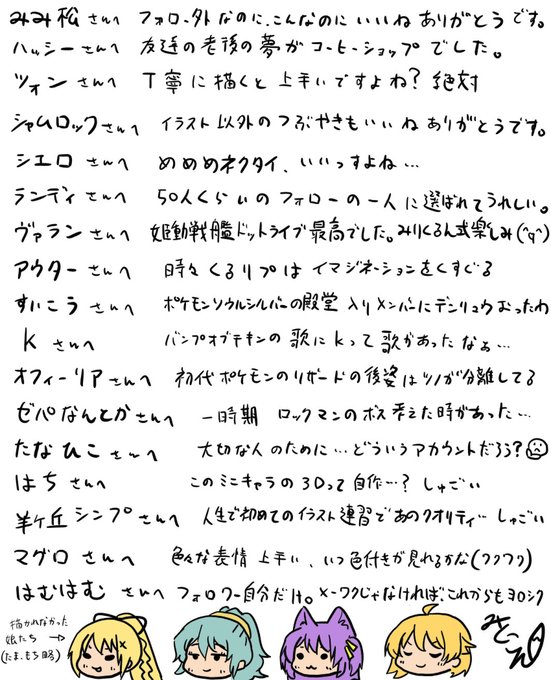 みみ松 さんへ フォロー外なのに、こんなのにいいねありがとうです。
ハッシー さんへ 友達の老後の夢がコーヒーショップでした。
ツォン さんへ 丁寧に描くと上手いですよね？絶対
シャムロックさんへ イラスト以外のつぶやきもいいねありがとうです。
シエロ さんへ めめめネクタイ、いいっすよね…
ランディ さんへ 50人くらいのフォローの一人に選ばれてうれしい。
ヴァラン さんへ 姫動戦艦ドットライブ最高でした。みりくるん式楽しみ(^q^)
アウター さんへ 時々くるリプはイマジネーションをくすぐる
すいこう さんへ ポケモンソウルシルバーの殿堂入りメンバーにデンリュウおったわ
k さんへ バンプオブチキンの歌にkって歌があったなぁ…
オフィーリア さんへ 初代ポケモンのリザードの後姿はツノが分離してる
ゼパなんとかさんへ 一時期 ロックマンのボス考えた時があった…
たなひこ さんへ 大切な人のために…どういうアカウントだろう？
はち さんへ このミニキャラの3Dって自作…？しゅごい
羊ヶ丘シンプさんへ 人生で初めてのイラスト練習であのクオリティー しゅごい
マグロ さんへ 色々な表情上手い、いつ色付きが見れるかな(ワクワク)
はむはむ さんへ フォロワー自分だけ。メーワクじゃなければ、これからもヨロシク
描かれなかった
娘たち →
(たま、もち略)